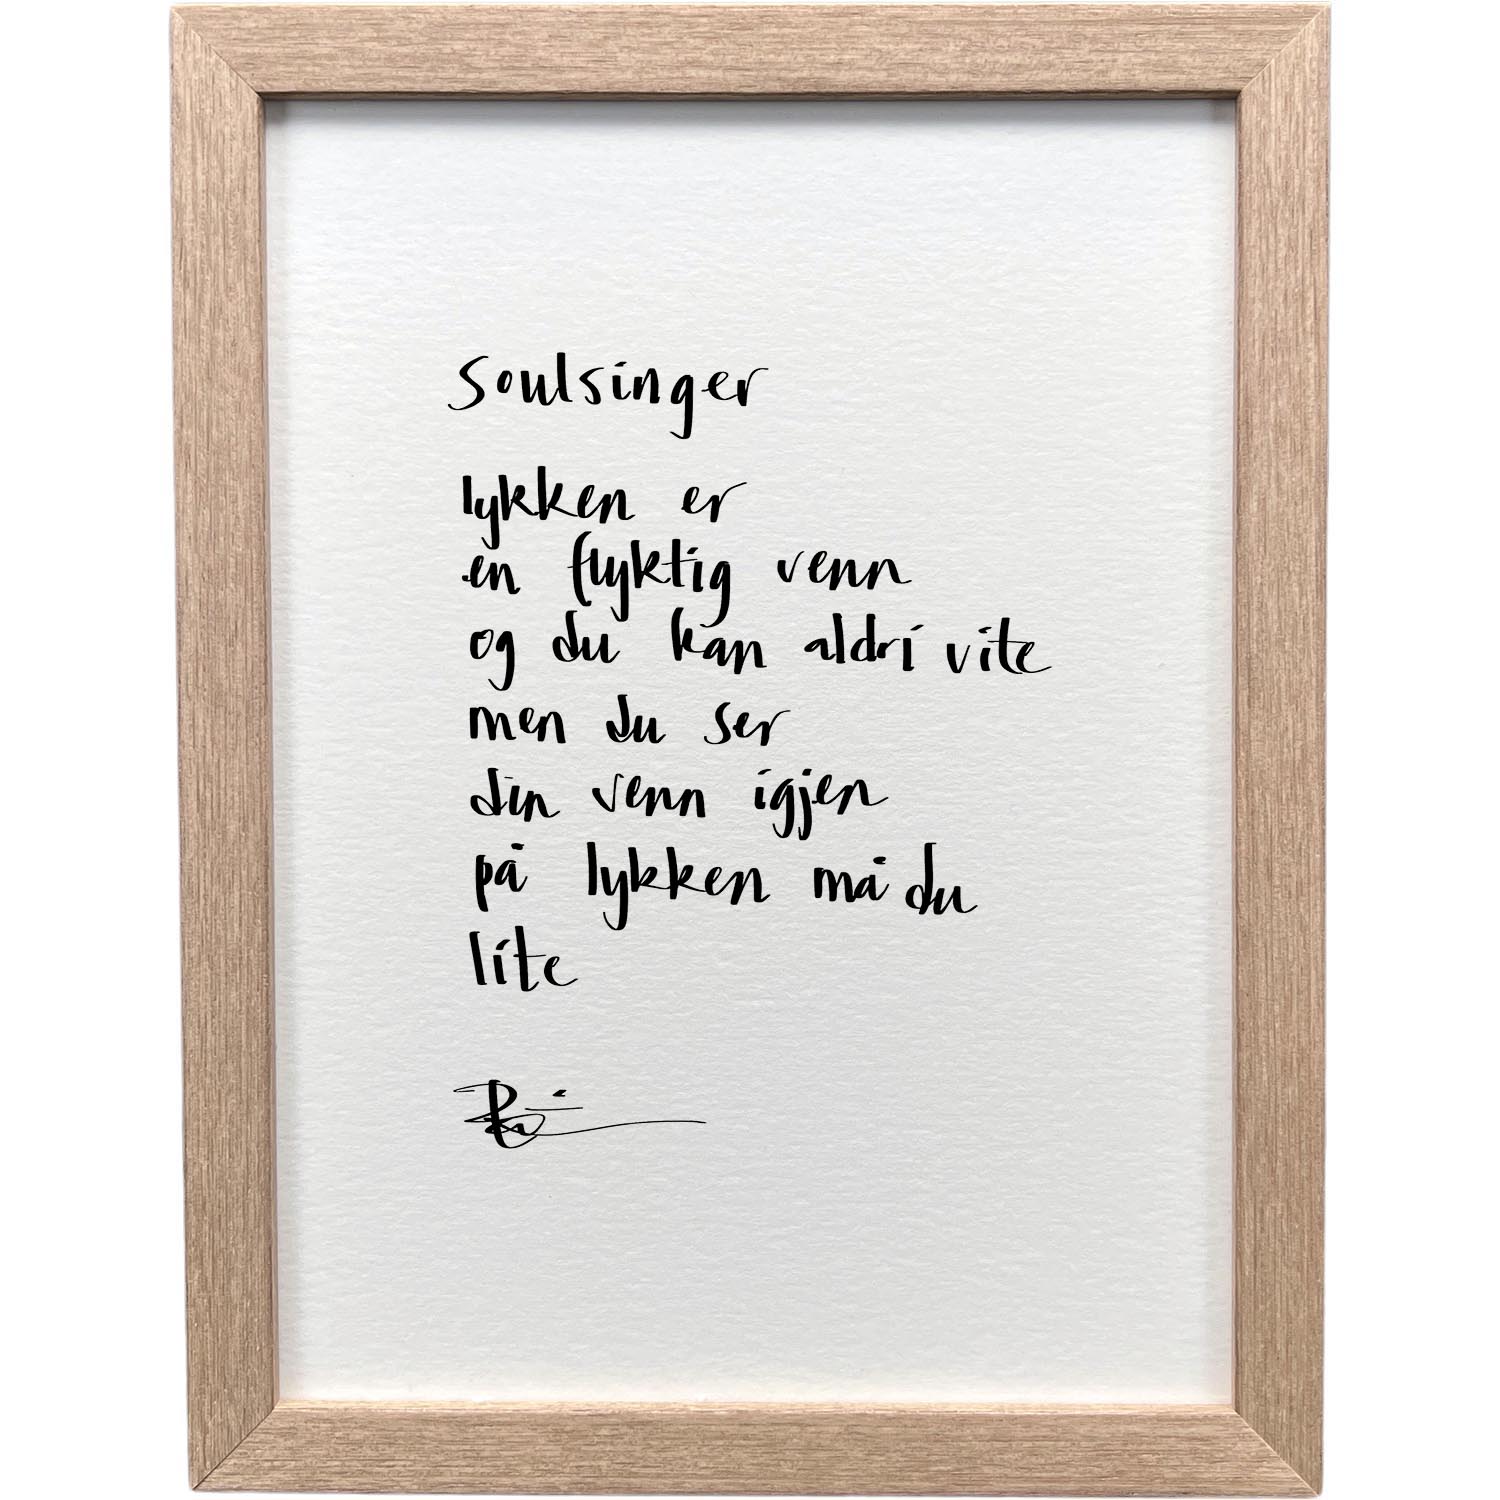 Soulsinger
lykken er
en flyktig venn
og du kan aldri vite
men du ser
din venn igjen
på lykken må du
lite